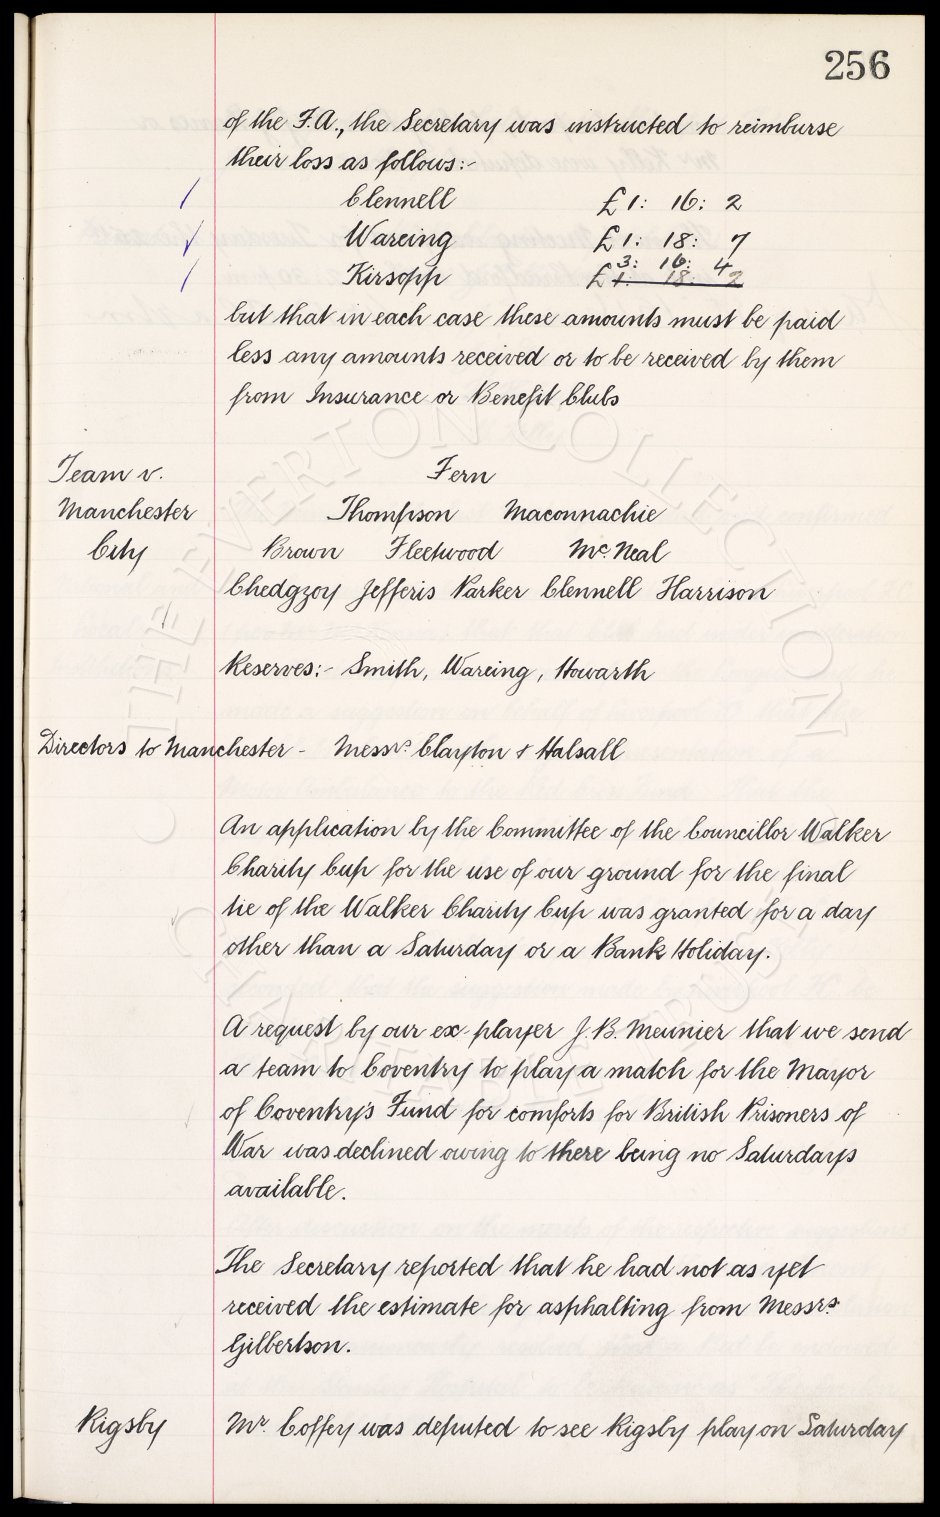 256
of the F.A., the Secretary was instructed to reimburse
their loss as follows:-
Clennell £1: 16: 2
Wareing £1: 18: 7
3: 16: 4
Kirsopp £1: 18: 2
but that in each case these amounts must be paid
less any amounts received or to be received by them
from Insurance or Benefit Clubs
Team v. Fern
Manchester Thompson Maconnachie
City Brown Fleetwood Mc. Neal
Chedgzoy Jefferis Parker Clennell Harrison
Reserves:- Smith, Wareing, Howarth
Directors to Manchester - Messrs. Clayton & Halsall
An application by the Committee of the Councillor Walker
Charity Cup for the use of our ground for the final
tie of the Walker Charity Cup was granted for a day
other than a Saturday or a Bank Holiday.
A request by our ex-player J. B. Meunier that we send
a team to Coventry to play a match for the Mayor
of Coventry's Fund for comforts for British Prisoners of
War was declined owing to there being no Saturdays
available.
The Secretary reported that he had not as yet
received the estimate for asphalting from Messrs.
Gilbertson.
Rigsby Mr. Coffey was deputed to see Rigsby play on Saturday
THE EVERTON COLLECTION
CHARITABLE TRUST